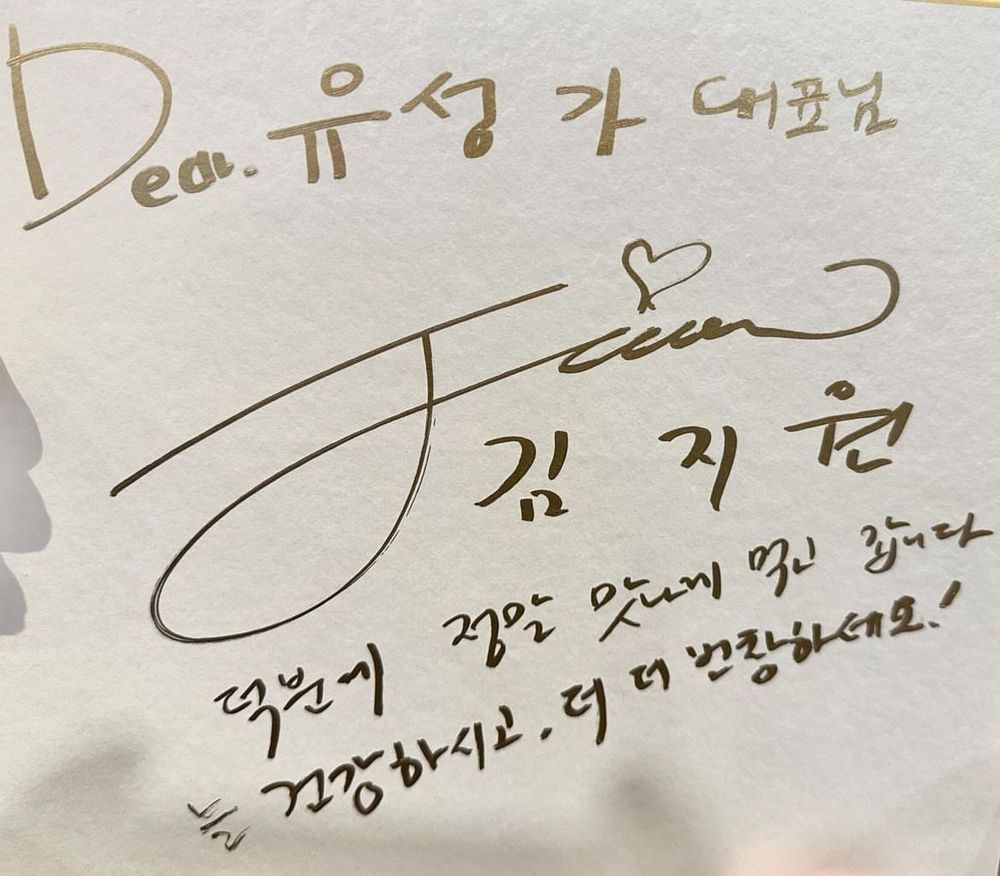 Dear. 유성가 대표님
김지원
덕분에 정말 맛나게 먹고 갑니다
늘 건강하시고. 더 더 번창하세요!